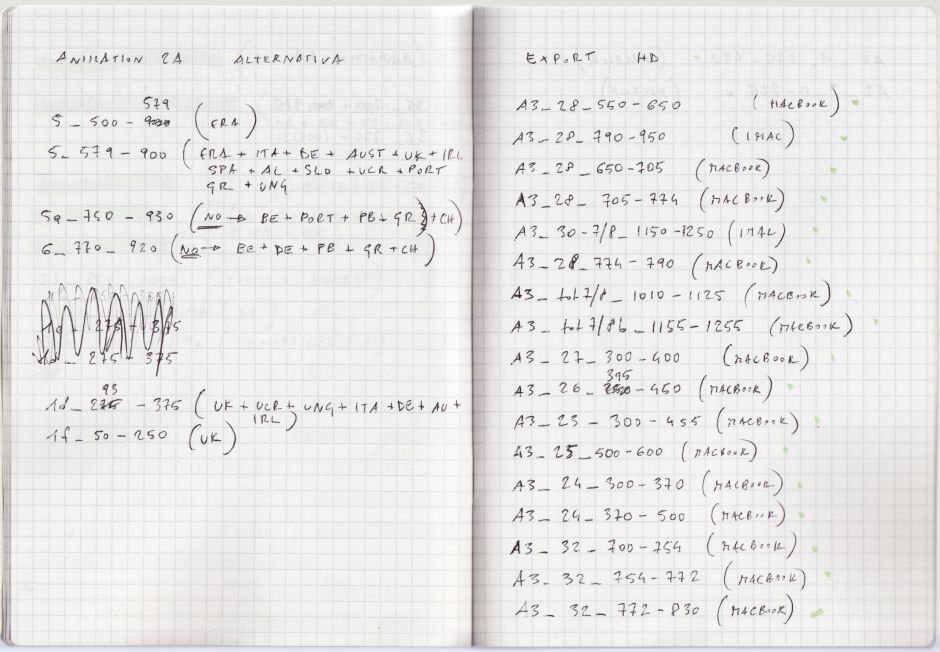 ANIMATION 2A ALTERNATIVA
579
5_ 500 - (FRA)
5_ 579 - 900 (FRA + ITA + DE + AUST + UK + IRL
SPA + AL + SLO + UCR + PORT
GR + UNG
5a_ 750 - 930 (NO → BE + PORT + PB + GR) + CH)
6_ 770_ 920 (NO → BE + DE + PB + GR + CH)
275 - 375
275 - 375
93
1d_ - 375 (UK + UCR + UNG + ITA + DE + AU +
IRL)
1f_ 50 - 250 (UK)
EXPORT HD
A3_28_550-650 (MACBOOK)
A3_28_790-950 (IMAC)
A3_28_650-705 (MACBOOK)
A3_28_705-774 (MACBOOK)
A3_30-7/8_1150-1250 (IMAC)
A3_28_774-790 (MACBOOK)
A3_tot7/8_1010-1125 (MACBOOK)
A3_tot7/8b_1155-1255 (MACBOOK)
A3_27_300-400 (MACBOOK)
395
A3_26_ -450 (MACBOOK)
A3_23_300-455 (MACBOOK)
A3_25_500-600 (MACBOOK)
A3_24_300-370 (MACBOOK)
A3_24_370-500 (MACBOOK)
A3_32_700-754 (MACBOOK)
A3_32_754-772 (MACBOOK)
A3_32_772-830 (MACBOOK)